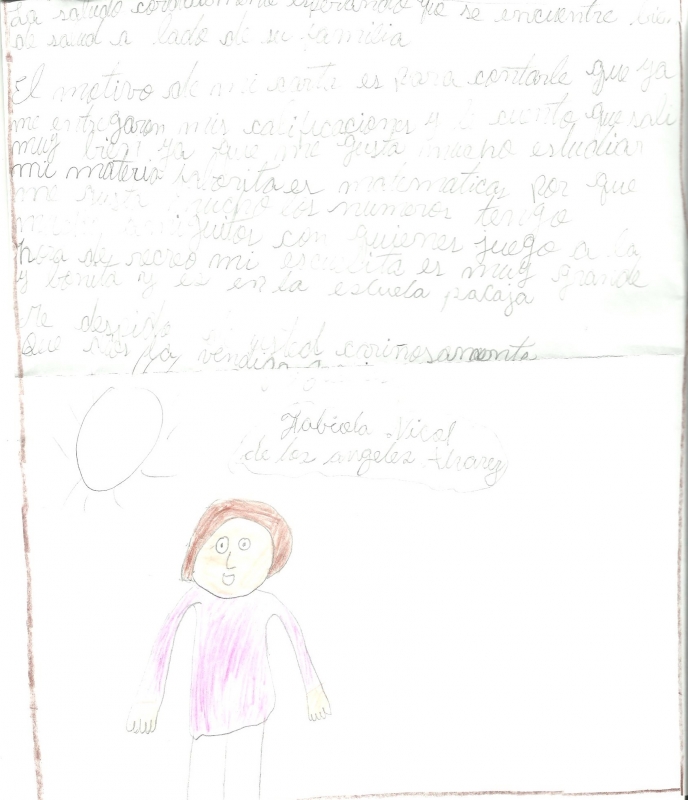 La saludo cordialmente esperando que se encuentre bien
de salud a lado de su familia
El motivo de mi carta es para contarle que ya
me entregaron mis calificaciones y le cuento que sali
muy bien ya que me gusta mucho estudiar
mi materia faborita es matematicas por que
me gusta mucho los numeros tengo
muchos amiguitos con quienes juego a la
hora de recreo mi escuelita es muy grande
y bonita y es en la escuela pacaja
Me despido de usted cariñosamente
que Dios la bendiga
Fabiola Nicol
de los angeles Alvarez